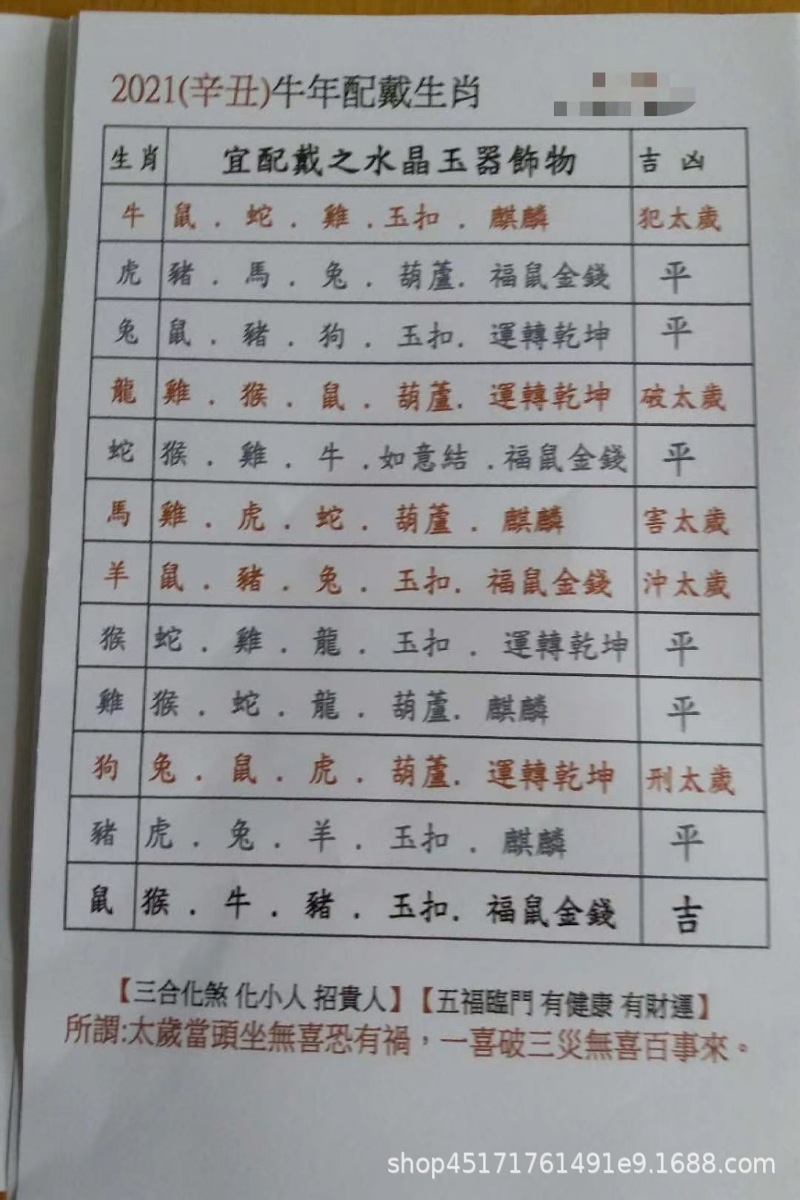 2021(辛丑)牛年配戴生肖
生肖 宜配戴之水晶玉器飾物 吉 凶
牛 鼠．蛇．雞．玉扣．麒麟 犯太歲
虎 豬．馬．兔．葫蘆．福鼠金錢 平
兔 鼠．豬．狗．玉扣．運轉乾坤 平
龍 雞．猴．鼠．葫蘆．運轉乾坤 破太歲
蛇 猴．雞．牛．如意結．福鼠金錢 平
馬 雞．虎．蛇．葫蘆．麒麟 害太歲
羊 鼠．豬．兔．玉扣．福鼠金錢 沖太歲
猴 蛇．雞．龍．玉扣．運轉乾坤 平
雞 猴．蛇．龍．葫蘆．麒麟 平
狗 兔．鼠．虎．葫蘆．運轉乾坤 刑太歲
豬 虎．兔．羊．玉扣．麒麟 平
鼠 猴．牛．豬．玉扣．福鼠金錢 吉
【三合化煞 化小人 招貴人】【五福臨門 有健康 有財運】
所謂:太歲當頭坐無喜恐有禍，一喜破三災無喜百事來。
shop45171761491e9.1688.com